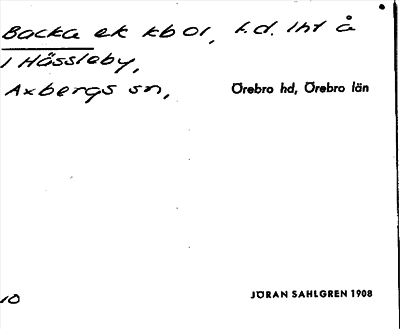 Backa ek kbol, t.d. Int å
i Hässleby,
Axbergs sn,
Örebro hd, Örebro län
10
JÖRAN SAHLGREN 1908